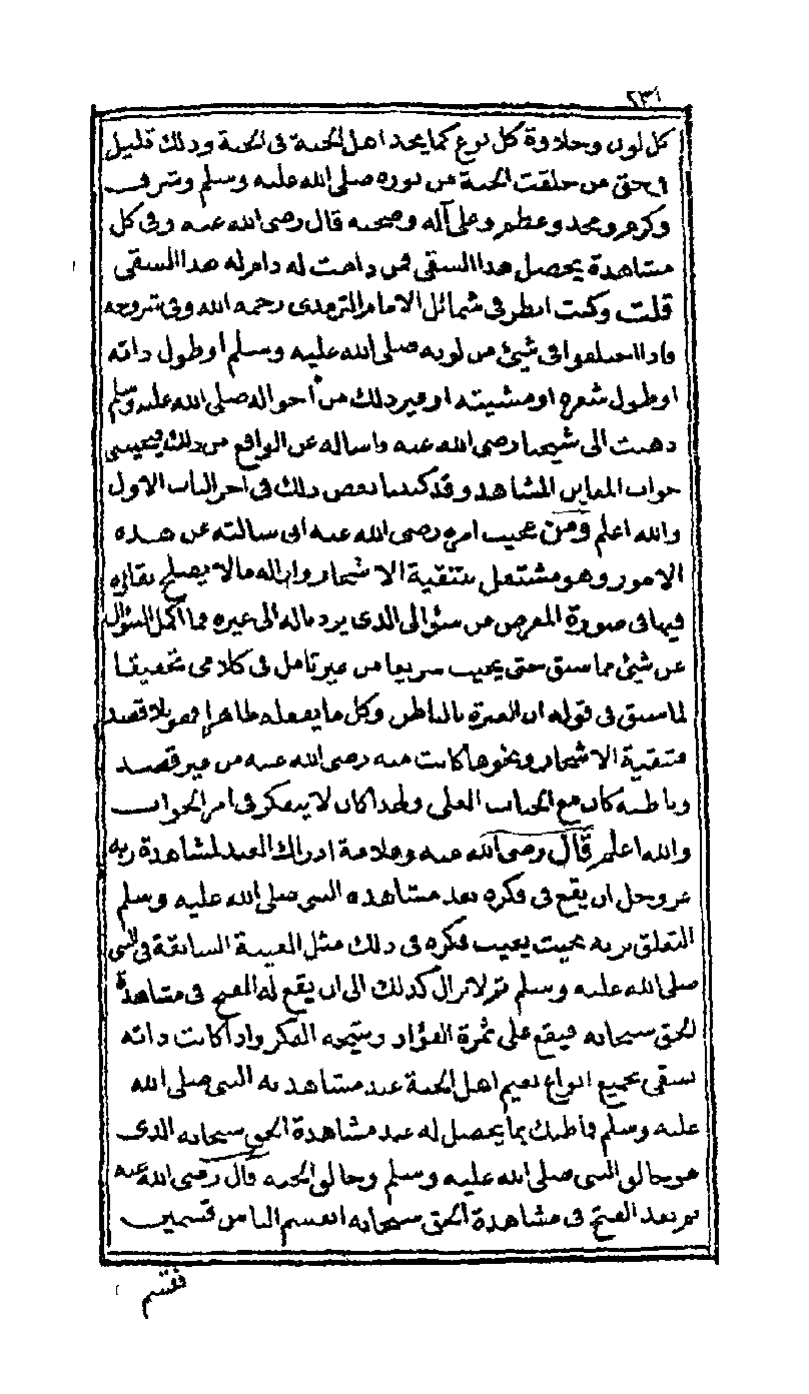 ٢٣١
كل لون وحلاوة كل نوع كما يجد اهل الجنة في الجنة وذلك قليل
في حق من خلقت الجنة من نوره صلى الله عليه وسلم وشرف
وكرم ومجد وعظم وعلى آله وصحبه قال رضي الله عنه وفي كل
مشاهدة يحصل هذا السقي فمن دامت له دام له هذا السقي
قلت وكنت انظر في شمائل الامام الترمذي رحمه الله وفي شروحه
فاذا اختلفوا في شيئ من لونه صلى الله عليه وسلم او طول ذاته
او طول شعره او مشيته او غير ذلك من احواله صلى الله عليه وسلم
ذهبت الى شيخنا رضي الله عنه فاساله عن الواقع من ذلك فيجيبني
جواب المعاين المشاهد وقد كتبنا بعض ذلك في آخر الباب الاول
والله اعلم ومن عجيب امره رضي الله عنه اني سالته عن هذه
الامور وهو مشتغل بتنقية الاشجار وازالة مالا يصلح بقاؤه
فيها في صورة المعرض من سؤالي الذي يرد باله الى غيره فما اكمل السؤال
عن شيئ مما سبق حتى يجيب سريعا من غير تامل في كلامي تحقيقا
لما سبق في قوله ان العبرة بالباطن وكل ما يفعله ظاهرا فهو بلا قصد
فتنقية الاشجار ونحوها كانت منه رضي الله عنه من غير قصد
وباطنه كان مع الجناب العلي ولهذا كان لا يتفكر في امر الجواب
والله اعلم قال رضي الله عنه وعلامة ادراك العبد لمشاهدة ربه
عز وجل ان يقع في فكره بعد مشاهدة النبي صلى الله عليه وسلم
التعلق بربه بحيث يغيب فكره في ذلك مثل الغيبة السابقة في النبي
صلى الله عليه وسلم ثم لا تزال كذلك الى ان يقع له الفتح في مشاهدة
الحق سبحانه فيقع على ثمرة الفؤاد ونتيجة الفكر واذا كانت ذاته
تسقى بجميع انواع نعيم اهل الجنة عند مشاهدته النبي صلى الله
عليه وسلم فما ظنك بما يحصل له عند مشاهدة الحق سبحانه الذي
هو خالق النبي صلى الله عليه وسلم وخالق الجنة قال رضي الله عنه
ثم بعد الفتح في مشاهدة الحق سبحانه انقسم الناس قسمين
فقسم